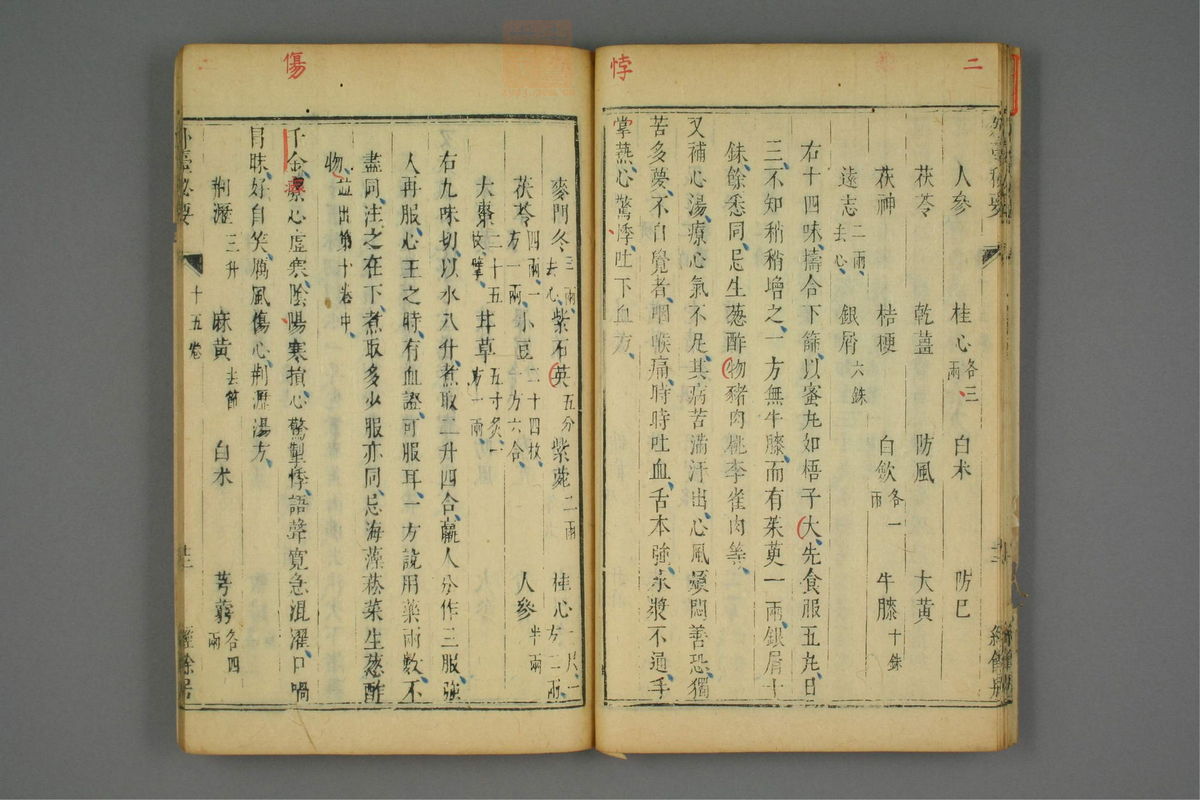 二
悸
人參 桂心各三兩 白朮 防巳
茯苓 乾薑 防風 大黃
茯神 桔梗 白歛各一兩 牛膝十銖
遠志二兩去心 銀屑六銖
右十四味擣合下篩以蜜丸如梧子大先食服五丸日
三不知稍稍增之一方無牛膝而有茱萸一兩銀屑十
銖餘悉同忌生葱酢物豬肉桃李雀肉等
又補心湯療心氣不足其病苦滿汗出心風煩悶善恐獨
苦多夢不自覺者咽喉痛時時吐血舌本強水漿不通手
掌熱心驚悸吐下血方
傷
麥門冬三兩去心 紫石英五分 紫菀二兩 桂心一尺一方二兩
茯苓四兩一方一兩 小豆二十四枚一方六合 人參半兩
大棗二十五枚擘 甘草五寸炙一方一兩
右九味切以水八升煮取二升四合羸人分作三服強
人再服心王之時有血證可服耳一方說用藥兩數不
盡同注之在下煮取多少服亦同忌海藻菘菜生葱酢
物並出第十卷中
千金療心虛寒陰陽寒損心驚掣悸語聲寬急混濁口喎
冒昧好自笑厲風傷心荊瀝湯方
荊瀝三升 麻黃去節 白朮 芎藭各四兩
外臺祕要
十五卷
二